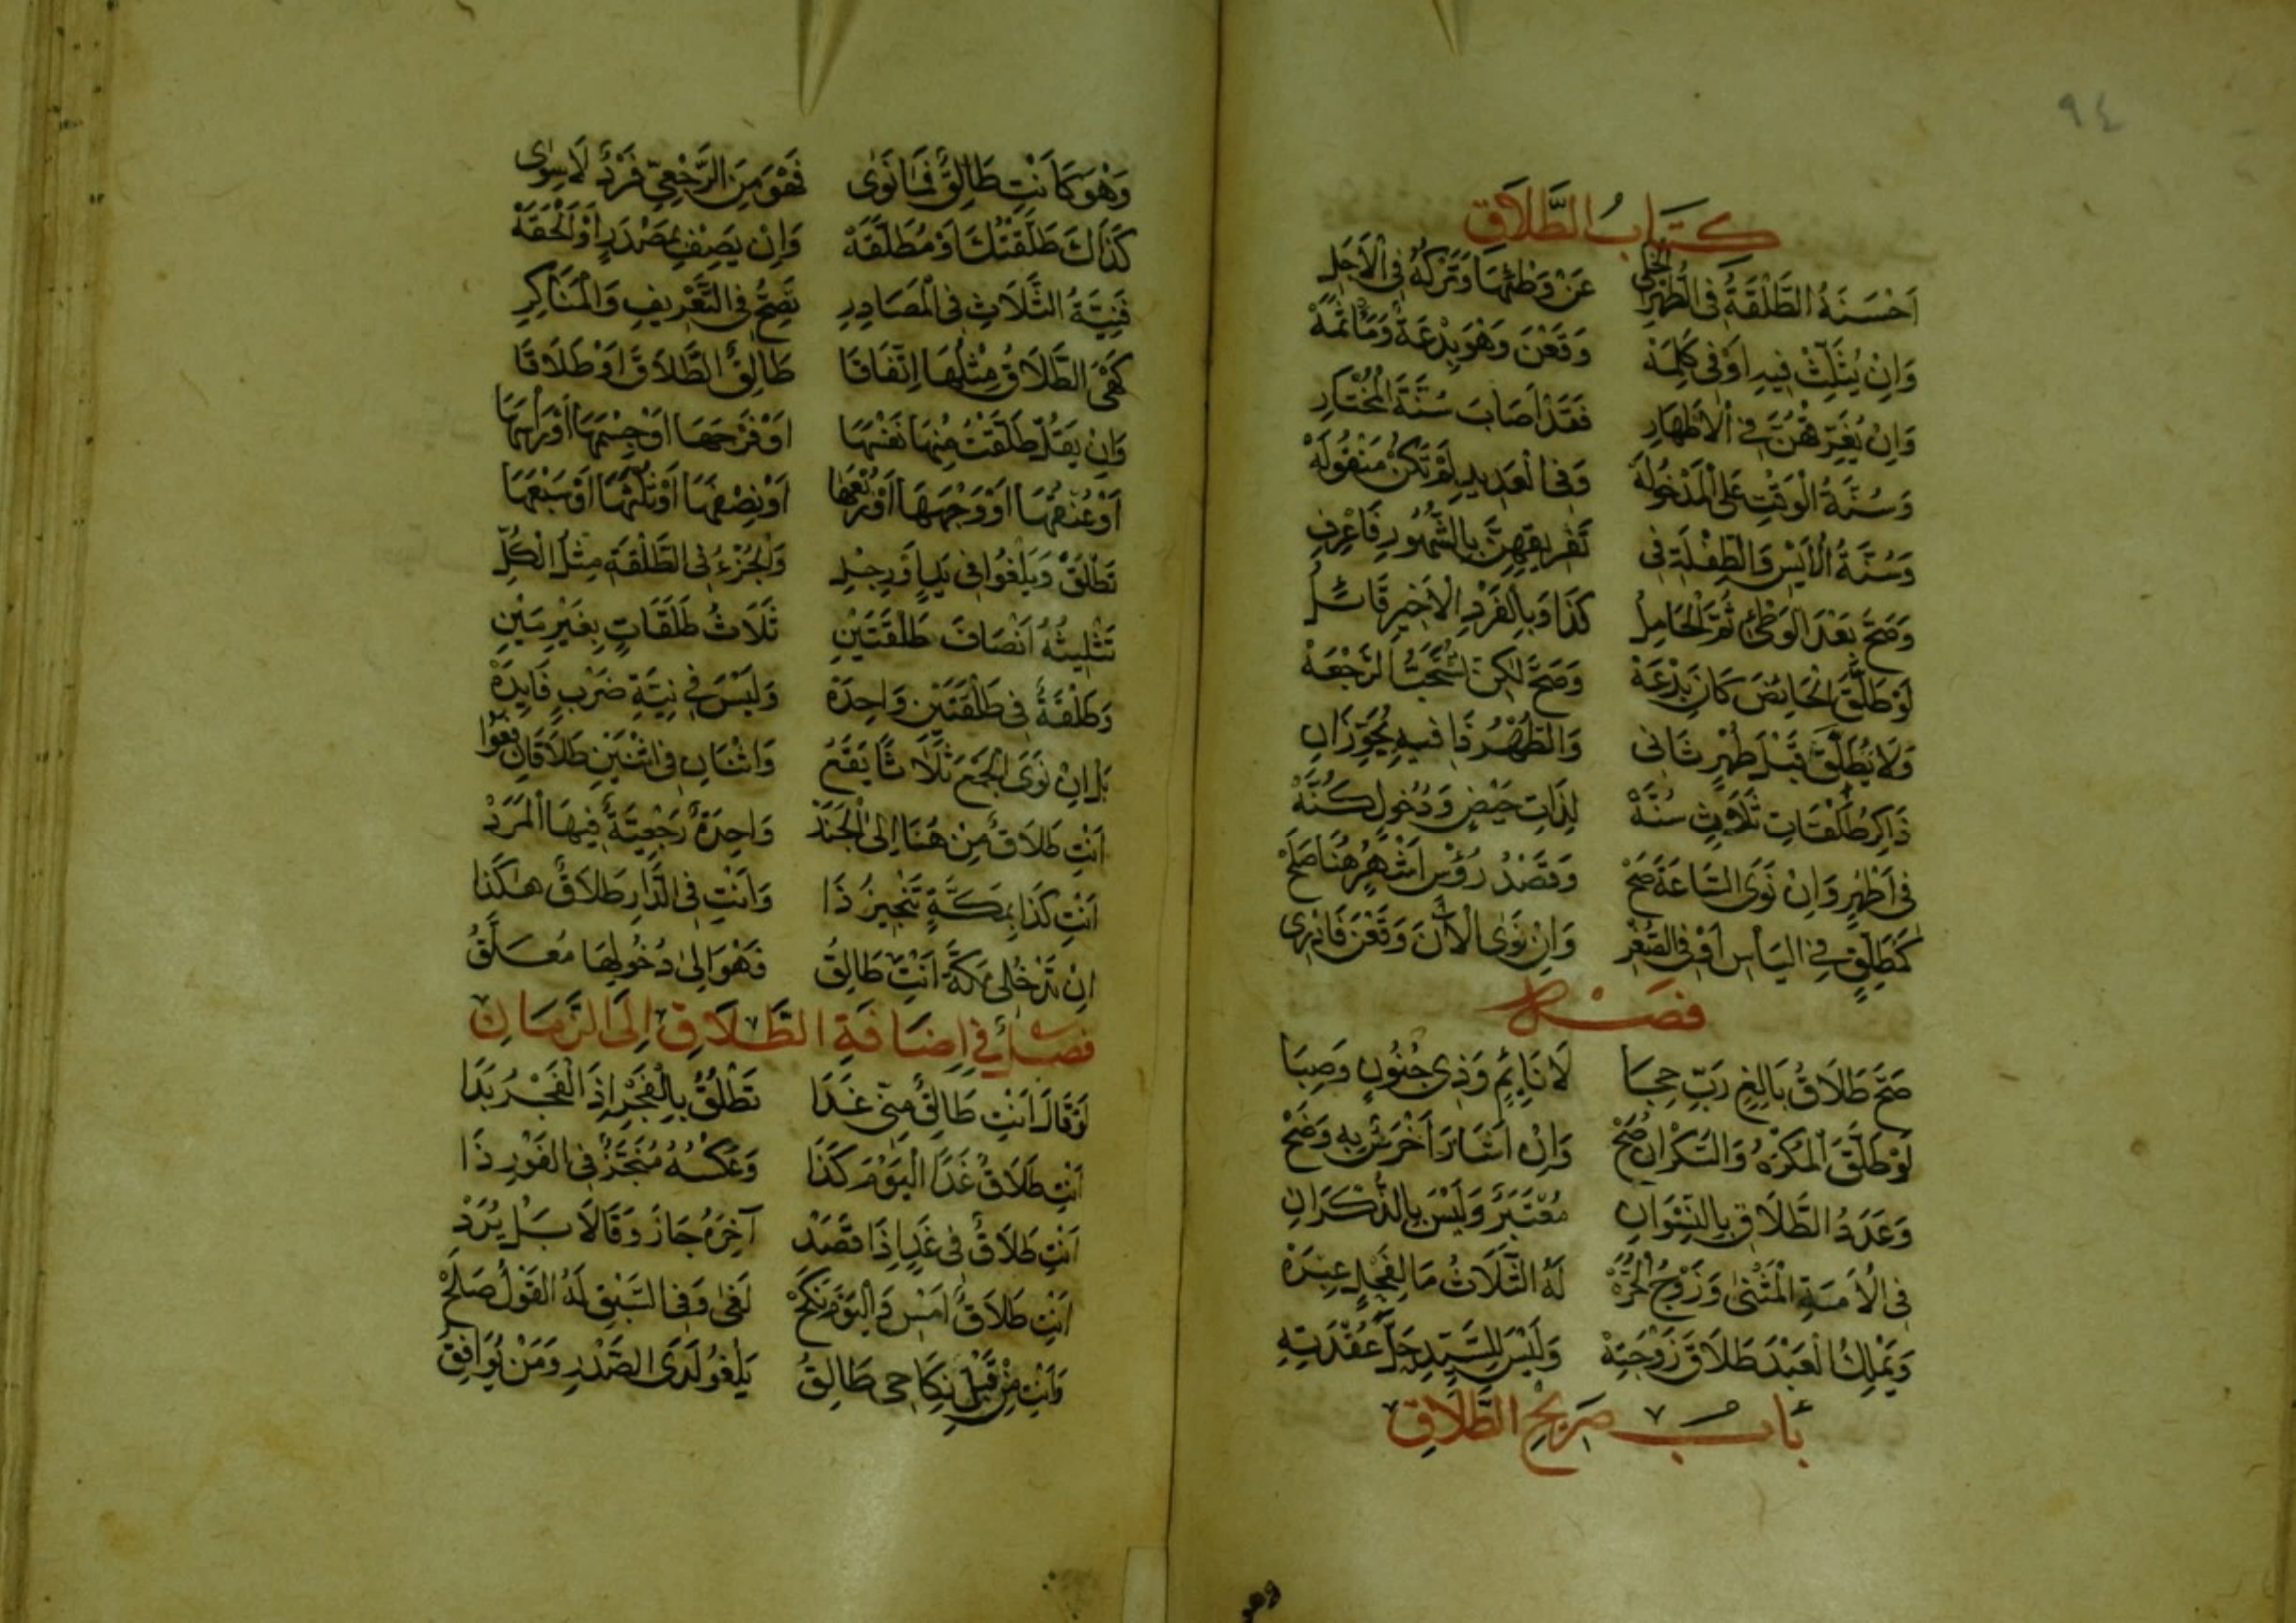 ٩٤
كِتَابُ الطَّلَاقِ
اَحْسَنَهُ الطَّلْقَةُ فِي الطُّهْرِ الخَلِي عَنْ وَطْئِهَا وَتَرْكُهُ فِي الْاَجَلِ
وَاِنْ يُثَلِّثْ فِيهِ اَوْ فِي كَلِمَهْ وَقَعْنَ وَهْوَ بِدْعَةٌ وَمَأْثَمَهْ
وَاِنْ يُفَرِّقْهُنَّ فِي الْاَطْهَارِ فَقَدْ اَصَابَ سُنَّةَ الْمُخْتَارِ
وَسُنَّةُ الْوَقْتِ عَلَى الْمَدْخُولَهْ وَفِي الْعَدِيدِ لَمْ تَكُنْ مَنْقُولَهْ
وَسُنَّةُ الْاَيْسِ وَالطِّفْلَةِ فِي تَفْرِيقِهِنَّ بِالشُّهُورِ فَاعْرِفِ
وَصَحَّ بَعْدَ الْوَطْئِ ثُمَّ الْحَامِلُ كَذَا وَبِالْفَرْدِ الْاَخِيرِ قَائِلُ
لَوْ طَلَّقَ الْحَائِضَ كَانَ بِدْعَهْ وَصَحَّ لٰكِنْ تُسْتَحَبُّ الرَّجْعَهْ
وَلَا يُطَلِّقَ قَبْلَ طُهْرٍ ثَانِي وَالطُّهْرُ ذَا فِيهِ يُجَوِّزَانِ
ذَاكِرُ طَلْقَاتٍ ثَلَاثٍ سُنَّهْ لِذَاتِ حَيْضٍ وَدُخُولٍ كُنَّهْ
فِي اَطْهُرٍ وَاِنْ نَوَى السَّاعَةَ صَحّْ وَقَصْدُ رُؤْسِ اَشْهُرٍ هُنَا صَلَحْ
كَمُطَلِّقٍ فِي الْيَأْسِ اَوْ فِي الصِّغَرِ وَاِنْ نَوَى الْآنَ وَقَعْنَ فَادْرِي
فَصْل
صَحَّ طَلَاقُ بَالِغٍ رَبِّ حِجَا لَا نَائِمٍ وَذِي جُنُونٍ وَصِبَا
لَوْ طَلَّقَ الْمُكْرَهُ وَالسَّكْرَانُ صَحّْ وَاِنْ اَشَارَ اَخْرَسٌ بِهِ وَضَحْ
وَعَدَدُ الطَّلَاقِ بِالنِّسْوَانِ مُعْتَبَرٌ وَلَيْسَ بِالذُّكْرَانِ
فِي الْاَمَةِ الْمَثْنٰى وَزَوْجُ الْحُرَّهْ لَهُ الثَّلَاثُ مَا لِفَحْلٍ عِبْرَهْ
وَيَمْلِكُ الْعَبْدُ طَلَاقَ زَوْجَتِهْ وَلَيْسَ لِلسَّيِّدِ حَلُّ عُقْدَتِهِ
بَابُ صَرِيحِ الطَّلَاقِ
وهو
وَهْوَ كَاَنْتِ طَالِقٌ فَمَا نَوَى فَهْوَ مِنَ الرَّجْعِيِّ فَرْدٌ لَا سِوٰى
كَذَاكَ طَلَّقْتُكِ اَوْ مُطَلَّقَهْ وَاِنْ يَصِفْ بِمَصْدَرٍ اَوْ اَلْحَقَهْ
فَنِيَّةُ الثَّلَاثِ فِي الْمَصَادِرِ تَصِحُّ فِي التَّعْرِيفِ وَالْمَنَاكِرِ
كَهْيَ الطَّلَاقُ مِثْلُهَا اِتِّفَاقَا طَالِقٌ الطَّلَاقَ اَوْ طَلَاقَا
وَاِنْ يَقُلْ طَلَّقْتُ مِنْهَا نَفْسَهَا اَوْ فَرْجَهَا اَوْ جِسْمَهَا اَوْ رَأْسَهَا
اَوْ عُنْقَهَا اَوْ وَجْهَهَا اَوْ رُبْعَهَا اَوْ نِصْفَهَا اَوْ ثُلْثَهَا اَوْ سُبْعَهَا
تَطْلُقْ وَيَلْغُوا فِي يَدٍ اَوْ رِجْلِ وَالْجُزْءُ فِي الطَّلْقَةِ مِثْلُ الْكُلِّ
تَثْلِيثُهُ اَنْصَافَ طَلْقَتَيْنِ ثَلَاثُ طَلَقَاتٍ بِغَيْرِ مَيْنِ
وَطَلْقَةٌ فِي طَلْقَتَيْنِ وَاحِدَهْ وَلَيْسَ فِي نِيَّةِ ضَرْبٍ فَايِدَهْ
بَلْ اِنْ نَوَى الْجَمْعَ ثَلَاثًا يَقَعُ وَاثْنَانِ فِي اثْنَيْنِ طَلَاقَانِ
اَنْتِ طَلَاقٌ مِنْ هُنَا اِلَى الْجَنَدْ وَاحِدَةٌ رَجْعِيَّةٌ فِيهَا الْمَرَدْ
اَنْتِ كَذَا بِمَكَّةٍ تَنْجِيزُ ذَا وَاَنْتِ فِي الدَّارِ طَلَاقٌ هٰكَذَا
اِنْ تَدْخُلِي مَكَّةَ اَنْتِ طَالِقُ فَهْوَ اِلٰى دُخُولِهَا مُعَلَّقُ
فصل فِي اِضَافَةِ الطَّلَاقِ اِلَى الزَّمَانِ
لَوْ قَالَ اَنْتِ طَالِقٌ مِنِّي غَدَا تَطْلُقُ بِالْفَجْرِ اِذَا الْفَجْرُ بَدَا
اَنْتِ طَلَاقٌ غَدًا الْيَوْمَ كَذَا وَعَكْسُهُ مُنَجَّزٌ فِي الْفَوْرِ ذَا
اَنْتِ طَلَاقٌ فِي غَدٍ اِذَا قَصَدْ آخِرَهُ جَازَ وَقَالَا بَلْ يُرَدْ
اَنْتِ طَلَاقٌ اَمْسِ وَالْيَوْمَ نَكَحْ لَغٰى وَفِي السَّبْقِ لَهُ الْقَوْلُ صَلَحْ
وَاَنْتِ مِنْ قَبْلِ نِكَاحِي طَالِقُ يَلْغُو لَدَى الصَّدْرِ وَمَنْ يُوَافِقُ